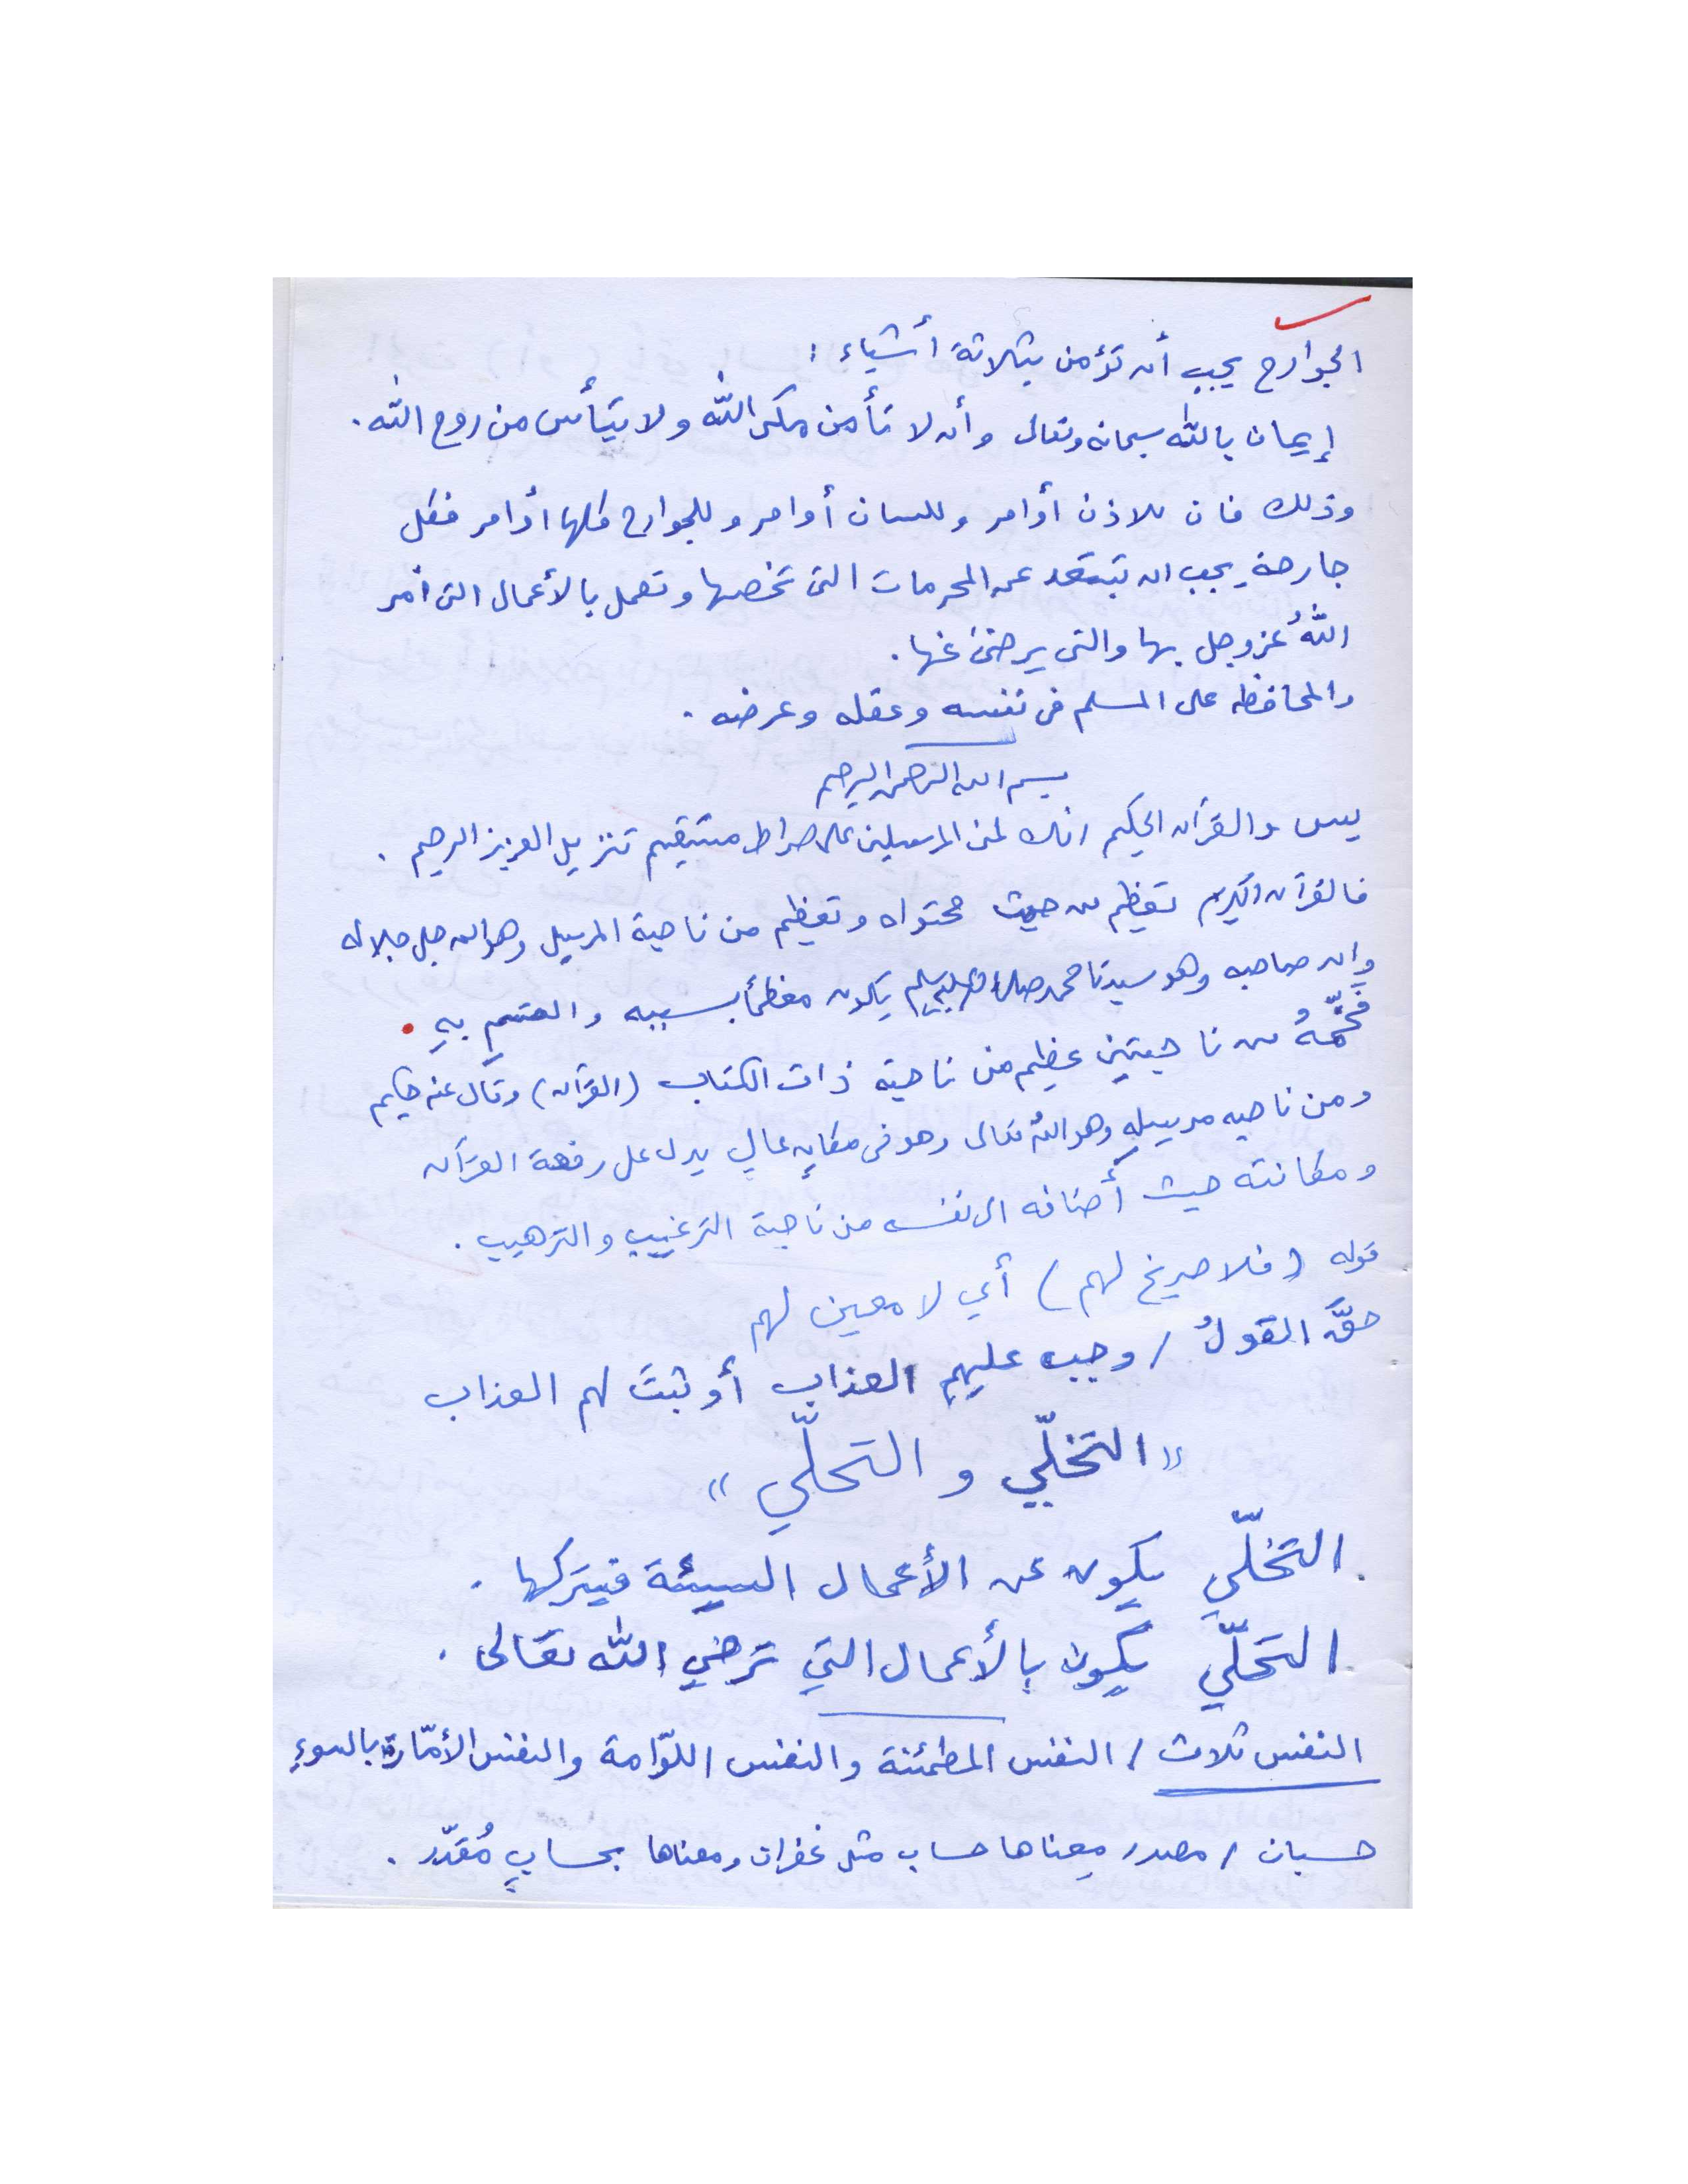 الجوارح يجب أن تؤمن بثلاثة أشياء :
إيمان بالله سبحانه وتعالى وأن لا تأمن مكر الله ولا تيأس من روح الله .
وذلك فان للاذن أوامر وللسان أوامر وللجوارح كلها أوامر فكل
جارحة يجب ان تبتعد عن المحرمات التي تخصها وتعمل بالأعمال التي أمر
اللهُ عز وجل بها والتي يرضى عنها .
والمحافظه على المسلم في نفسه وعقله وعرضه .
بسم الله الرحمن الرحيم
يس والقرآن الحكيم انك لمن المرسلين على صراط مستقيم تنزيل العزيز الرحيم .
فالقرآن الكريم تعظيم من حيث محتواه وتعظيم من ناحية المرسل وهو الله جل جلاله
وان صاحبه وهو سيدنا محمد صلى الله عليه وسلم يكون معظماً بسببه والقسم بهِ .
فخّمهُ من ناحيتين عظيم من ناحية ذات الكتاب (القرآن) وقال عنه حكيم
ومن ناحيه مرسله وهو اللهُ تعالى وهو في مكانٍ عالٍ يدل على رفعة القرآن
ومكانته حيث أضافه الى نفسه من ناحية الترغيب والترهيب .
قوله (فلا صريخ لهم) أي لا معين لهم
حقَّ القولُ / وجب عليهم العذاب أو ثبتَ لهم العذاب
" التخلّي و التحلّي "
. التخلّي يكون عن الأعمال السيئة فيتركها .
. التحلّي يكون بالأعمال التي ترضي الله تعالى .
النفس ثلاث / النفس المطمئنة والنفس اللوّامة والنفس الأمّارة بالسوءِ
حسبان / مصدر معناها حساب مثل غفران ومعناها بحسابٍ مُقدّر .